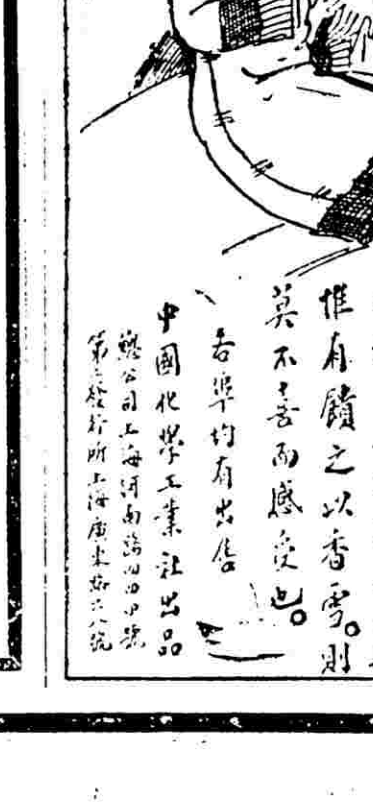 惟有饋之以香雪。則
莫不喜而感受也。
各埠均有出售
中國化學工業社出品
總公司上海河南路四四四號
第二發行所上海廣東路六八號